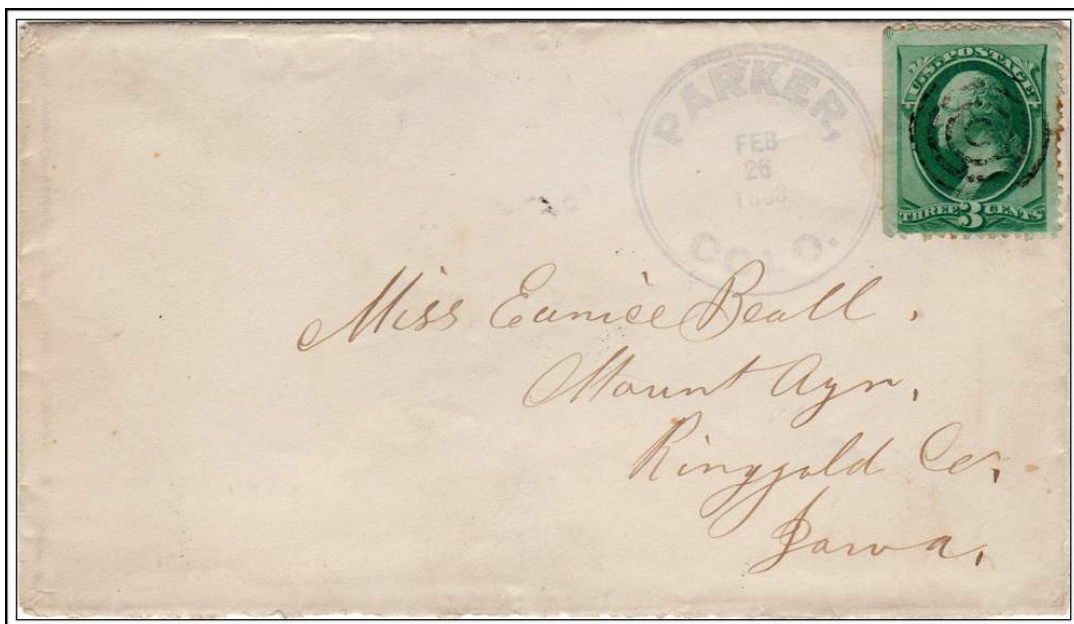 PARKER,
FEB
26
COLO.
U.S. POSTAGE
THREE 3 CENTS
Miss Eunice Beall.
Mount Ayr,
Ringgold Co.
Iowa.